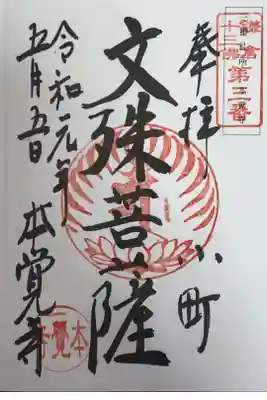 鎌倉
十三佛
第三番
奉拝 小町
文殊菩薩
令和元年
五月五日 本覚寺
本覚寺